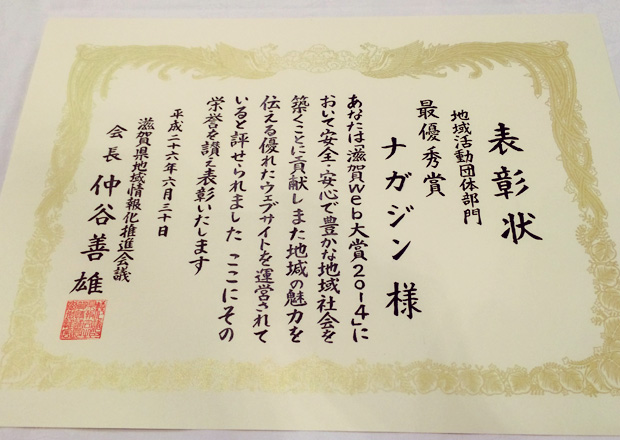 表彰状
地域活動団体部門
最優秀賞
ナガジン様
あなたは「滋賀web大賞2014」に
おいて安全・安心で豊かな地域社会を
築くことに貢献しまた地域の魅力を
伝える優れたウェブサイトを運営されて
いると評せられました ここにその
栄誉を讃え表彰いたします
平成二十六年六月二十日
滋賀県地域情報化推進会議
会長 仲谷善雄